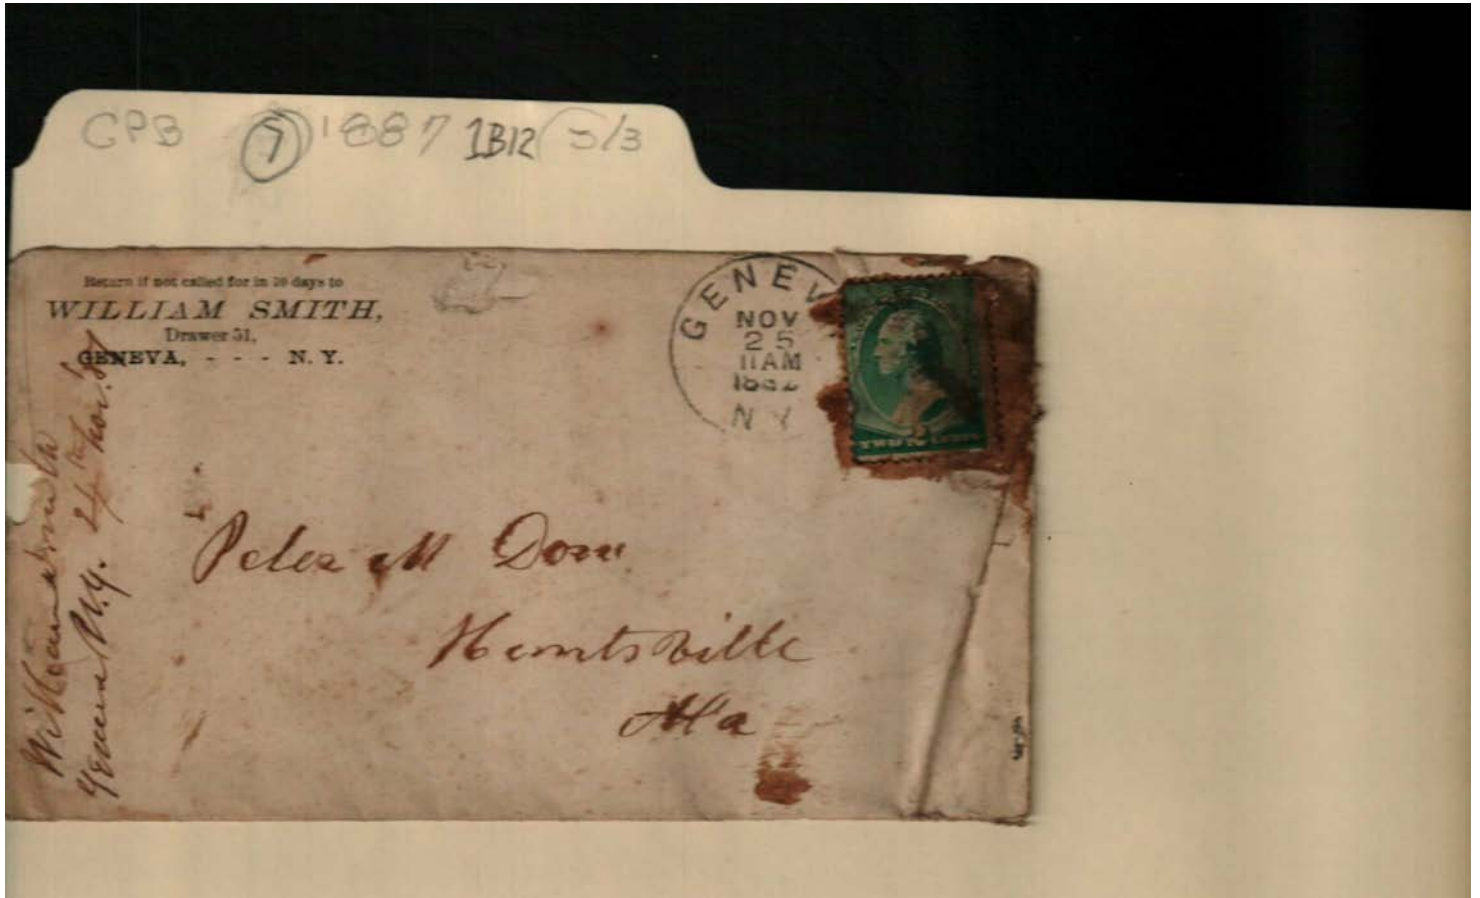 CPB 7 1887 1B12 5/3
Return if not called for in 10 days to
WILLIAM SMITH,
Drawer 51,
GENEVA, - - - N. Y.
GENEV
NOV
25
11AM
N Y
TWO 2 CENTS
Peter M Dow
Huntsville
Ala
William Smith
Geneva N.Y. 24th Nov. 87